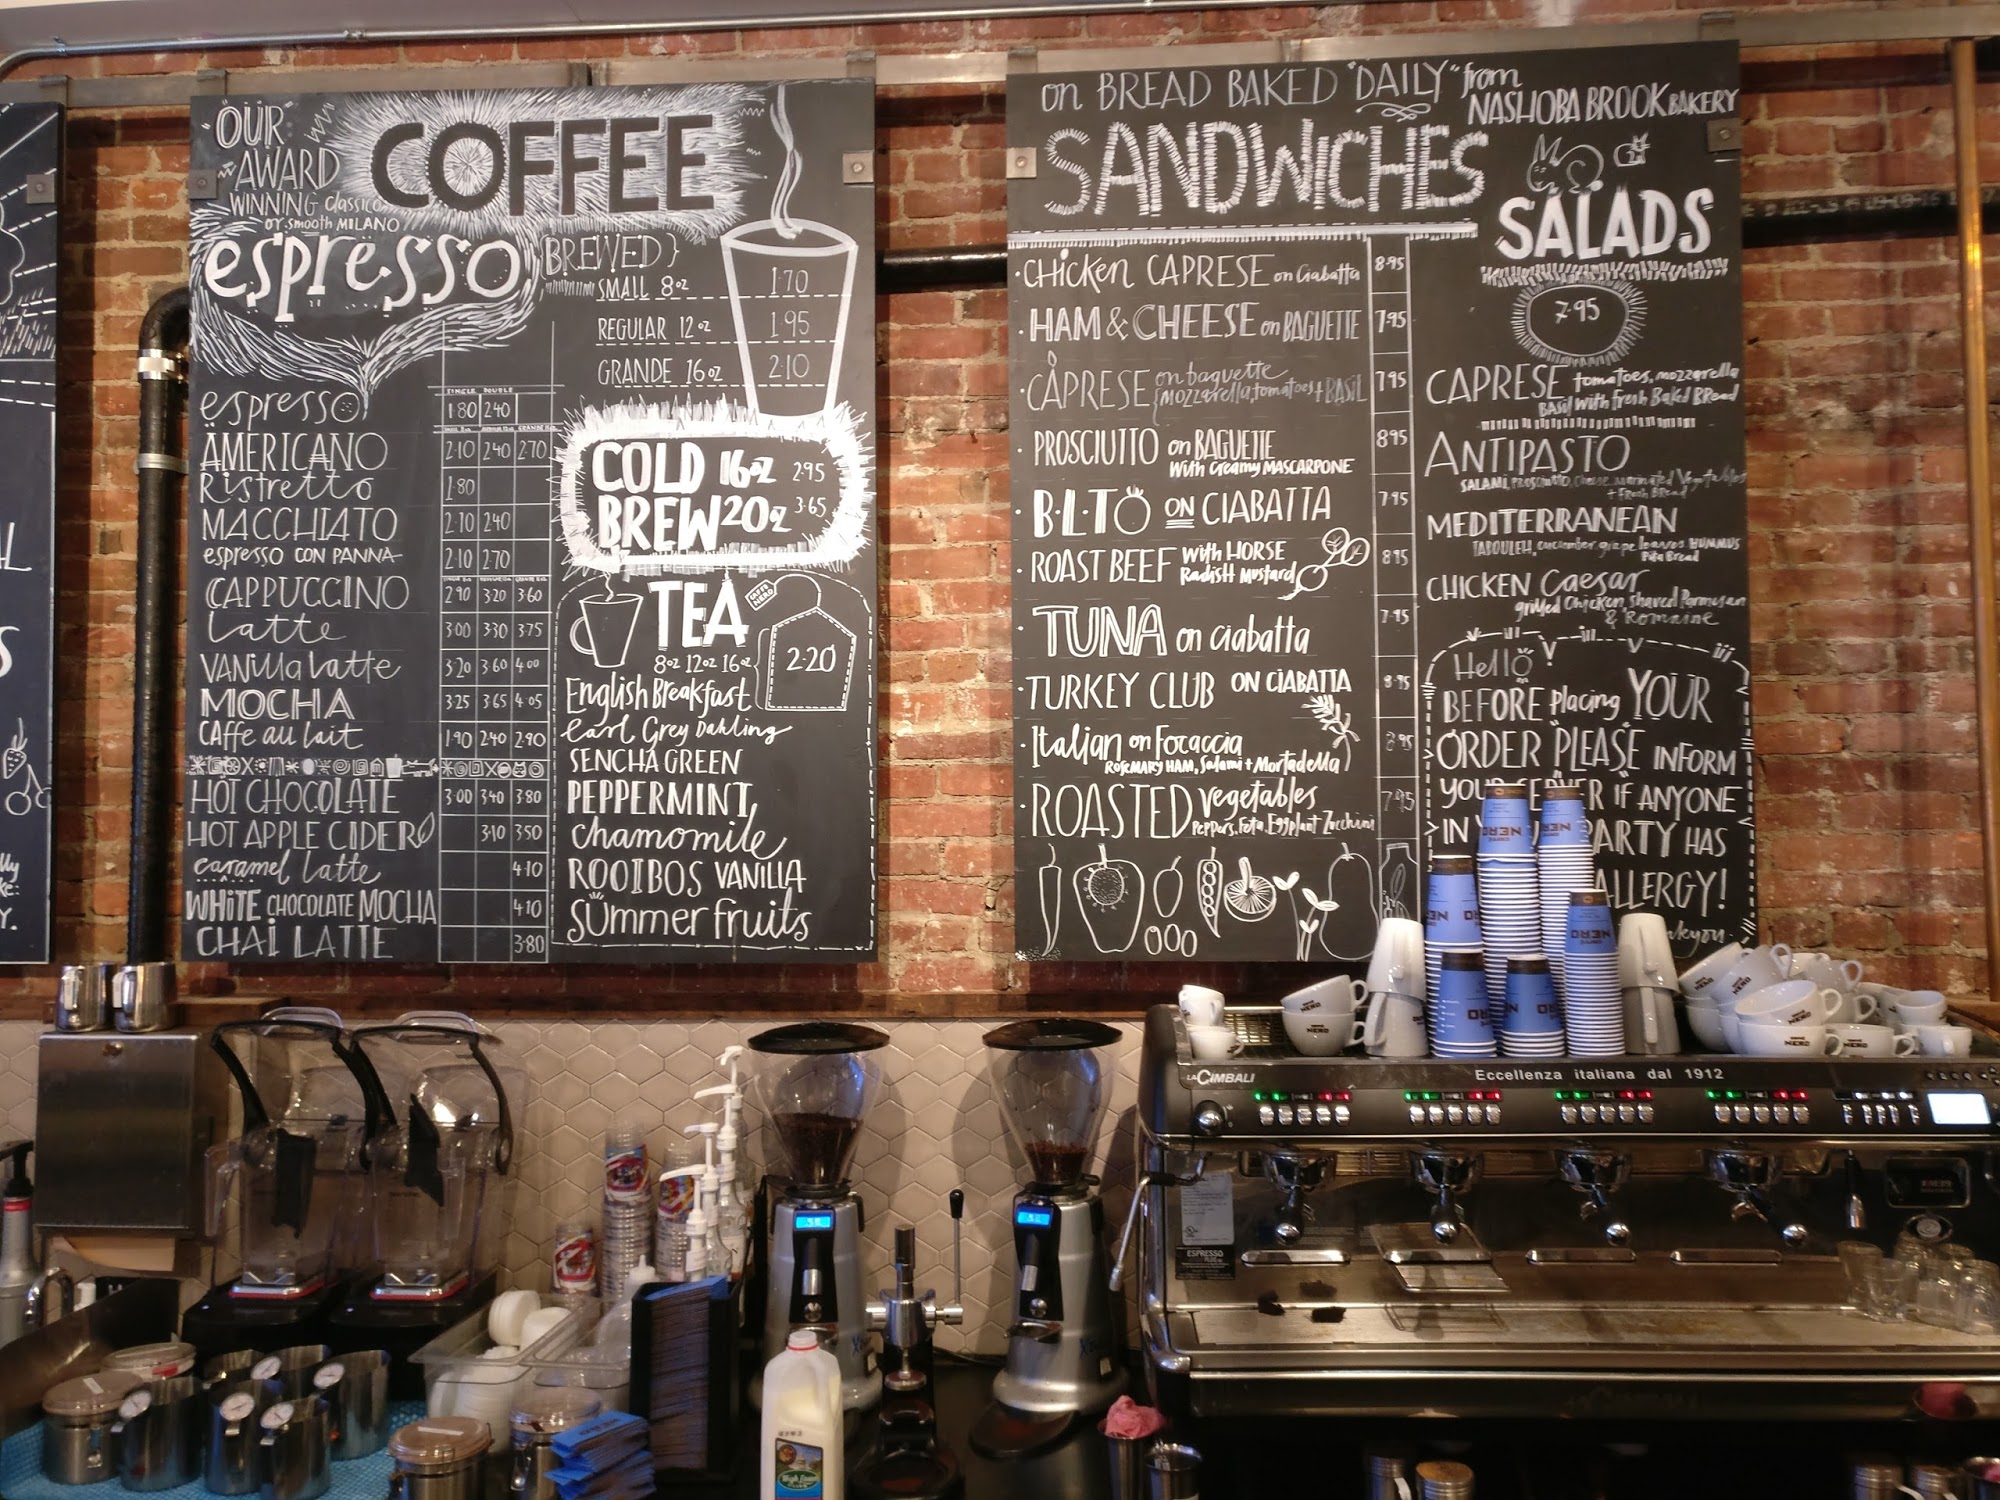 "OUR"
AWARD
WINNING classico
or smooth MILANO
COFFEE
espresso
{BREWED}
SMALL 8oz 1.70
REGULAR 12oz 1.95
GRANDE 16oz 2.10
SINGLE DOUBLE
espresso 1.80 2.40
AMERICANO 2.10 2.40 2.70
Ristretto 1.80
MACCHIATO 2.10 2.40
espresso CON PANNA 2.10 2.70
CAPPUCCINO 2.90 3.20 3.60
Latte 3.00 3.30 3.75
VANILLA latte 3.20 3.60 4.00
MOCHA 3.25 3.65 4.05
CAffe au lait 1.90 2.40 2.90
HOT CHOCOLATE 3.00 3.40 3.80
HOT APPLE CIDER 3.10 3.50
caramel latte 4.10
WHITE CHOCOLATE MOCHA 4.10
CHAI LATTE 3.80
COLD BREW
16oz 2.95
20oz 3.65
TEA
CAFFE NERO
8oz 12oz 16oz 2.20
English Breakfast
earl Grey Dahling
SENCHA GREEN
PEPPERMINT
Chamomile
ROOIBOS VANILLA
Summer fruits
on BREAD BAKED "DAILY" from
NASHOBA BROOK BAKERY
SANDWICHES
CHicken CAPRESE on Ciabatta 8.95
HAM & CHEESE on BAGUETTE 7.95
CAPRESE on baguette 7.95
{mozzarella, tomatoes + BASIL
PROSCIUTTO on BAGUETTE 8.95
With creamy MASCARPONE
B.L.T on CIABATTA 7.95
ROAST BEEF with HORSE 8.95
Radish Mustard
TUNA on ciabatta 7.95
TURKEY CLUB ON CIABATTA 8.95
Italian on Focaccia 8.95
ROSEMARY HAM, Salami + Mortadella
ROASTED vegetables 7.95
Peppers, Feta, Eggplant Zucchini
SALADS
7.95
CAPRESE tomatoes, mozzarella
BASIL with fresh Baked BRead
ANTIPASTO
SALAMI, PROSCIUTTO, cheese, marinated Vegetables
+ FResH BRead
MEDITERRANEAN
TABOULEH, cucumber, grape leaves, HUMMUS
Pita Bread
CHICKEN Caesar
grilled Chicken, Shaved Parmesan
& Romaine
Hello
BEFORE placing YOUR
ORDER "PLEASE" INFORM
YOUR SERVER IF ANYONE
IN YOUR PARTY HAS
ALLERGY!
CAFFÈ NERO
LA CIMBALI
Eccellenza italiana dal 1912
ESPRESSO